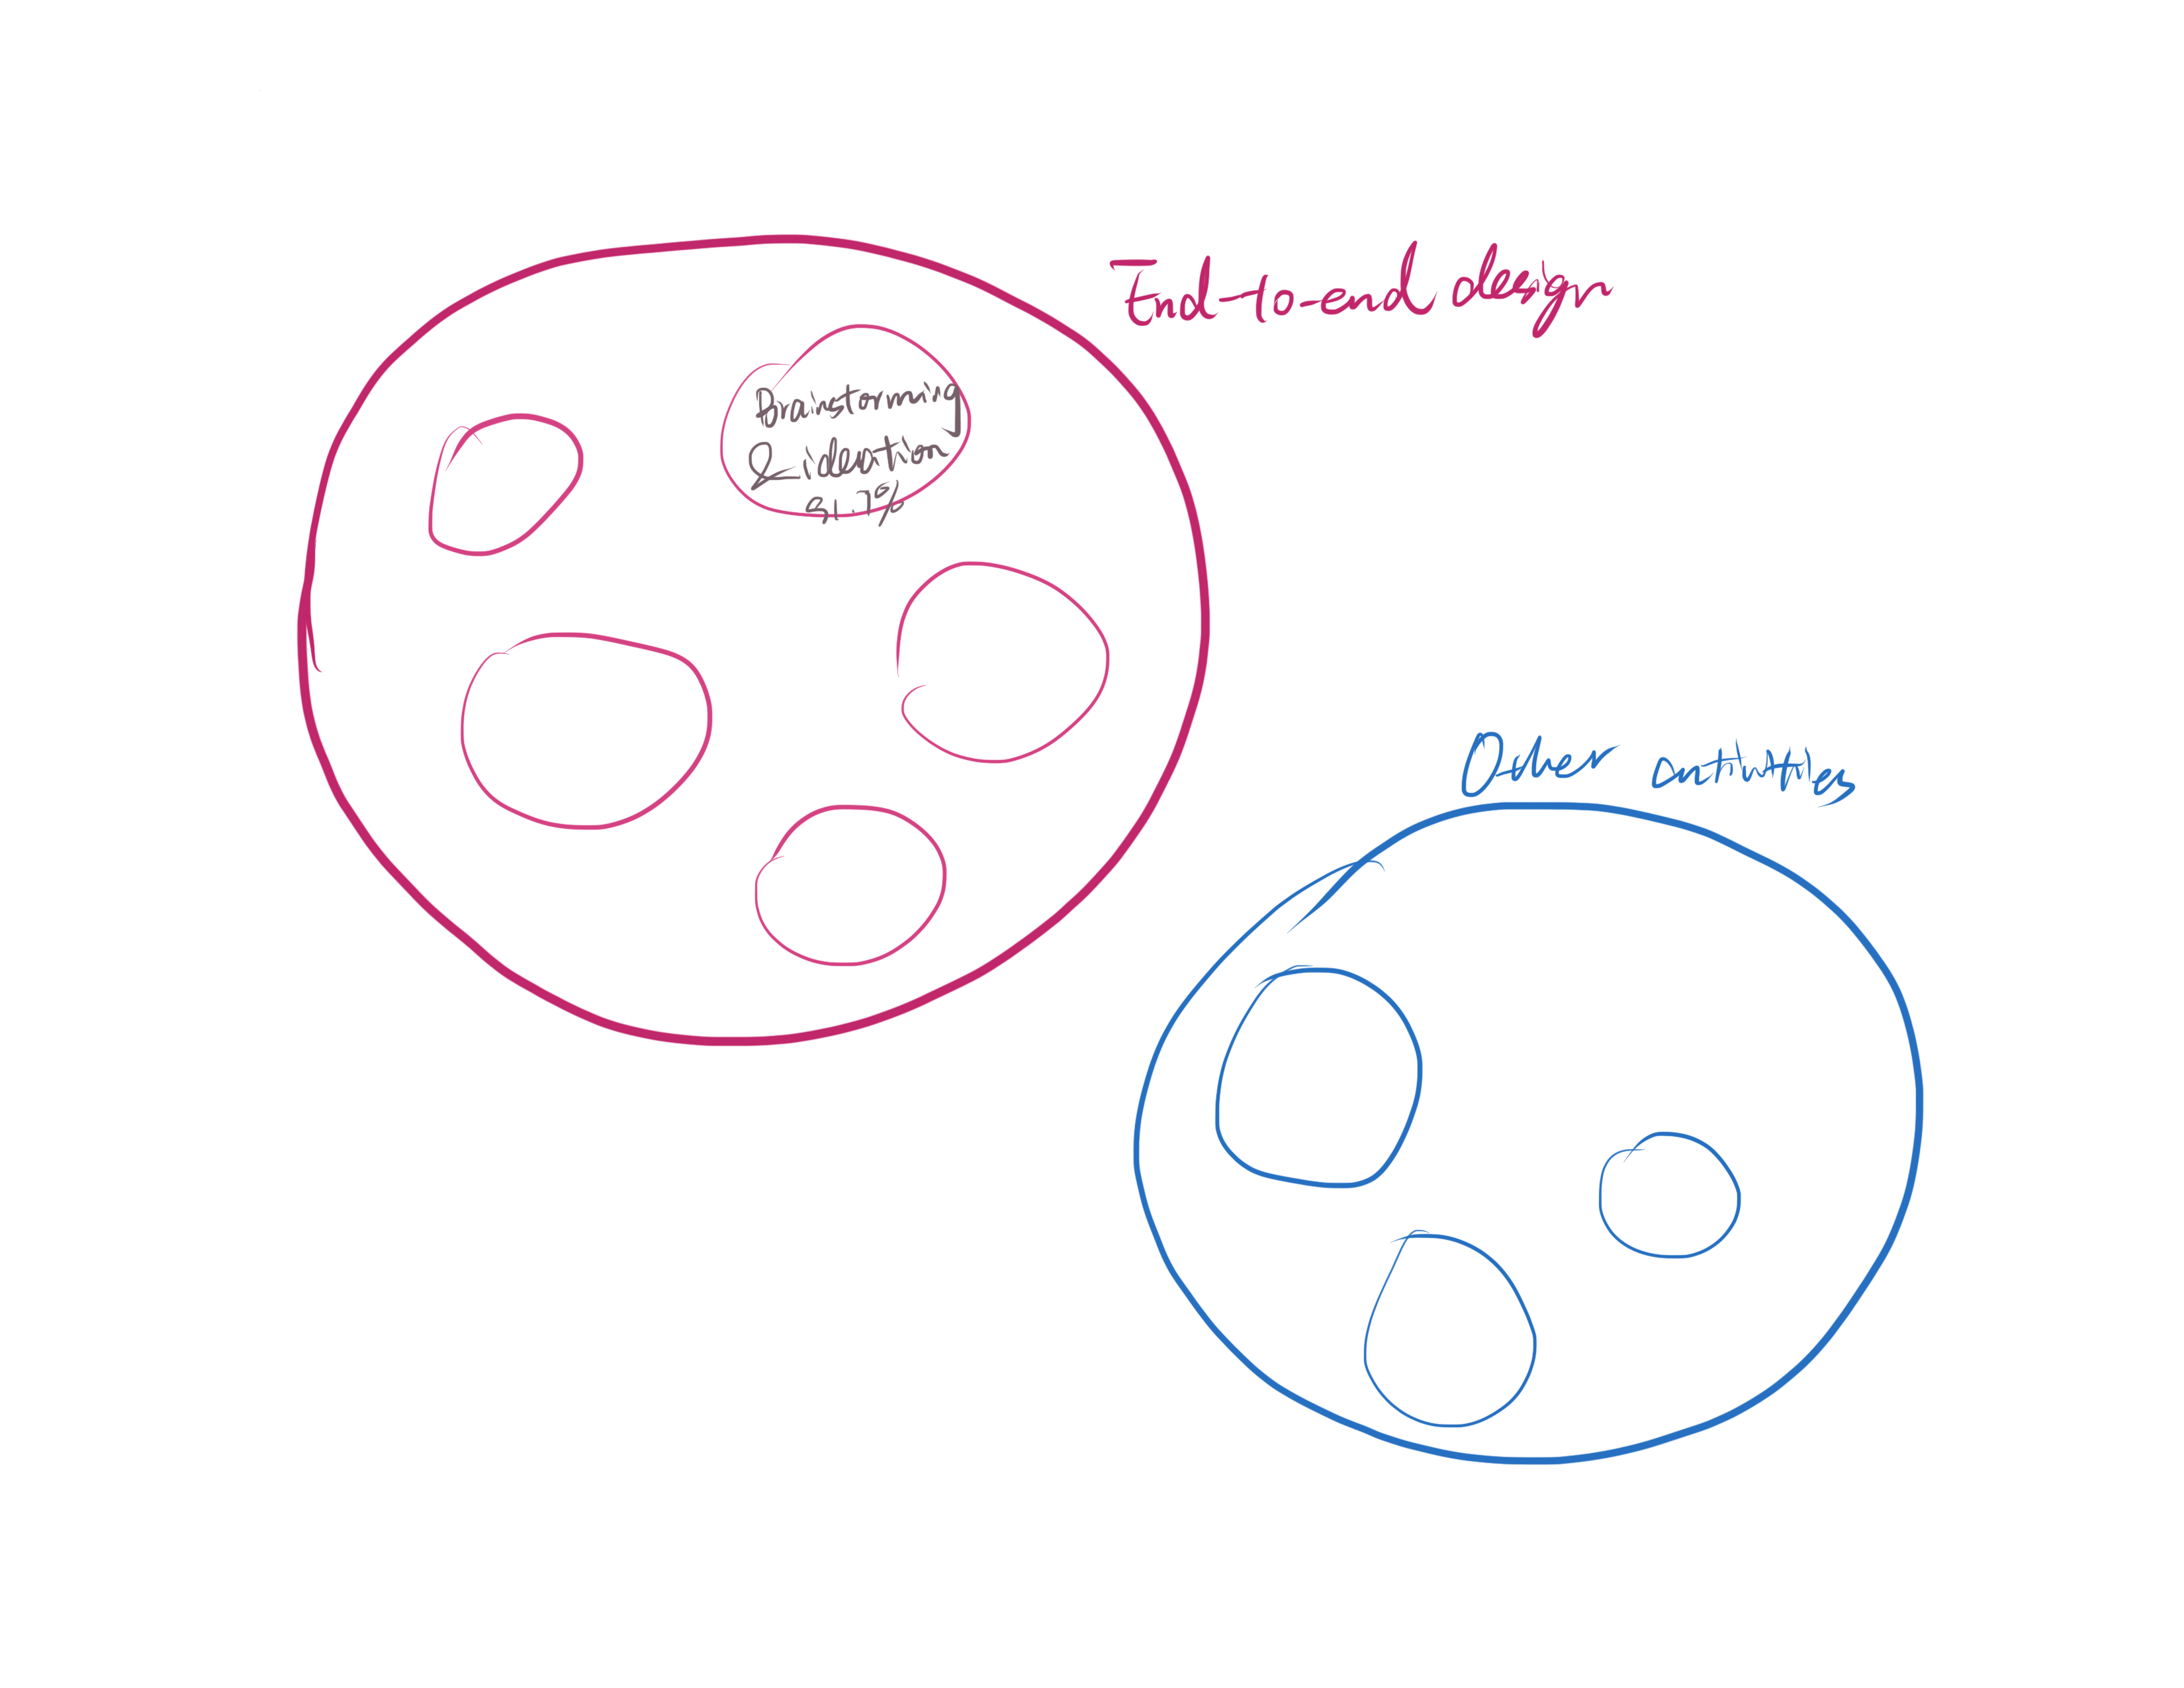 End-to-end design
Brainstorming
& ideation
31.7%
Other activities